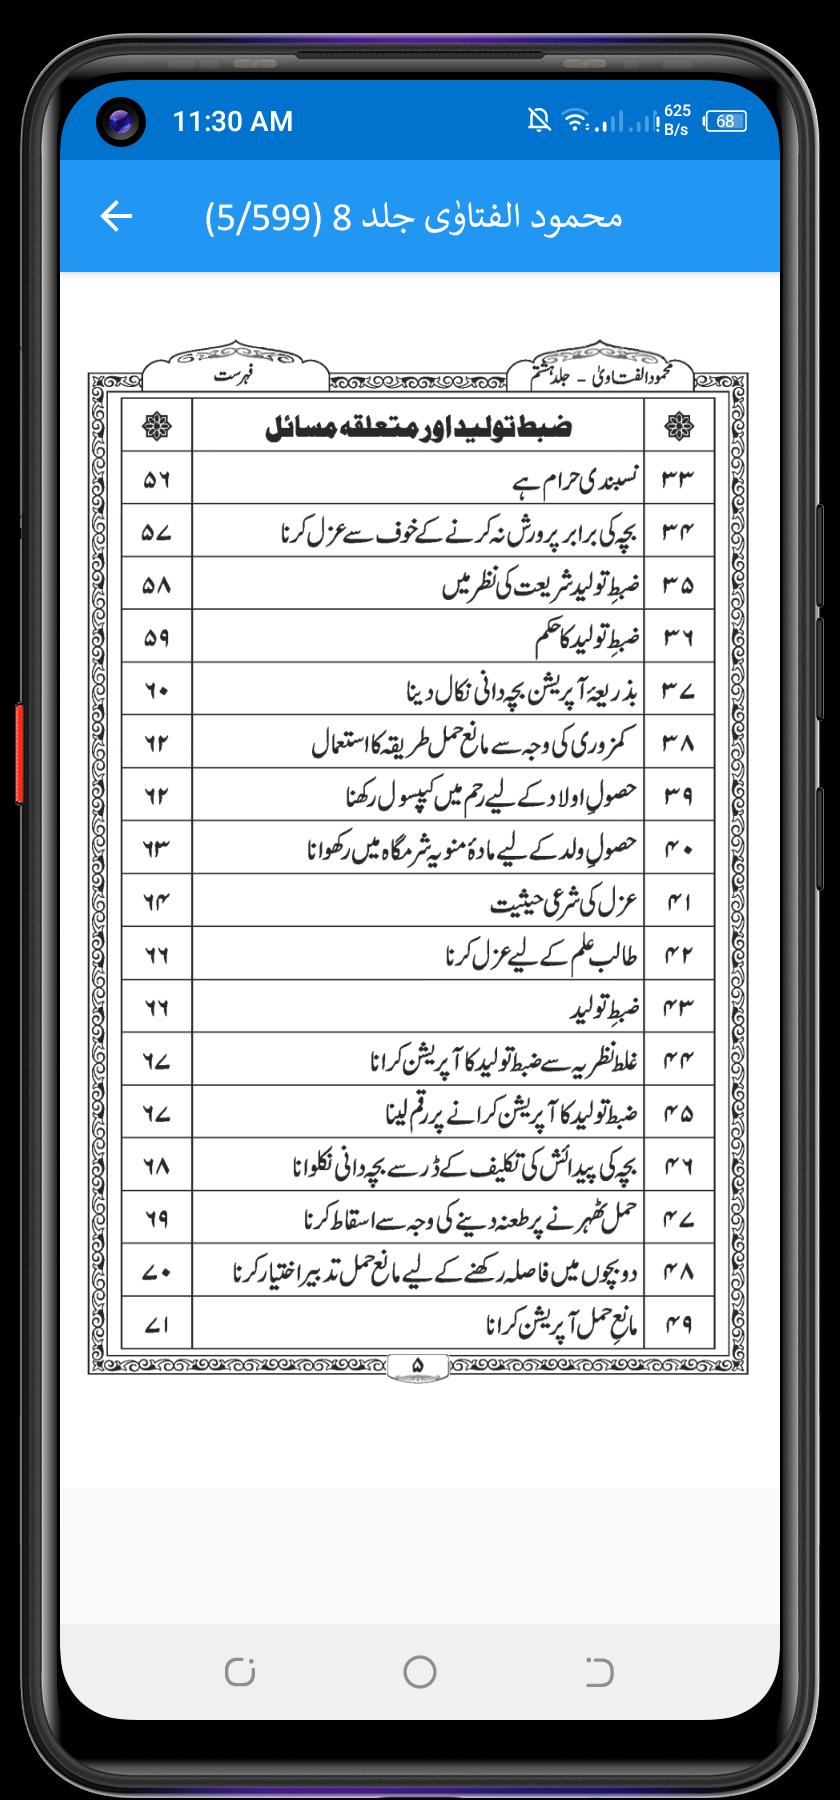 11:30 AM 625 B/s 68
محمود الفتاوٰی جلد 8 (5/599)
محمود الفتاویٰ - جلد ہشتم فہرست
ضبط تولید اور متعلقہ مسائل
۳۳ نسبندی حرام ہے ۵۶
۳۴ بچہ کی برابر پرورش نہ کرنے کے خوف سے عزل کرنا ۵۷
۳۵ ضبطِ تولید شریعت کی نظر میں ۵۸
۳۶ ضبطِ تولید کا حکم ۵۹
۳۷ بذریعۂ آپریشن بچہ دانی نکال دینا ۶۰
۳۸ کمزوری کی وجہ سے مانع حمل طریقہ کا استعمال ۶۲
۳۹ حصولِ اولاد کے لیے رحم میں کیپسول رکھنا ۶۲
۴۰ حصولِ ولد کے لیے مادۂ منویہ شرمگاہ میں رکھوانا ۶۳
۴۱ عزل کی شرعی حیثیت ۶۴
۴۲ طالب علم کے لیے عزل کرنا ۶۶
۴۳ ضبطِ تولید ۶۶
۴۴ غلط نظریہ سے ضبط تولید کا آپریشن کرانا ۶۷
۴۵ ضبط تولید کا آپریشن کرانے پر رقم لینا ۶۷
۴۶ بچہ کی پیدائش کی تکلیف کے ڈر سے بچہ دانی نکلوانا ۶۸
۴۷ حمل ٹھہرنے پر طعنہ دینے کی وجہ سے اسقاط کرنا ۶۹
۴۸ دو بچوں میں فاصلہ رکھنے کے لیے مانع حمل تدبیر اختیار کرنا ۷۰
۴۹ مانعِ حمل آپریشن کرانا ۷۱
۵